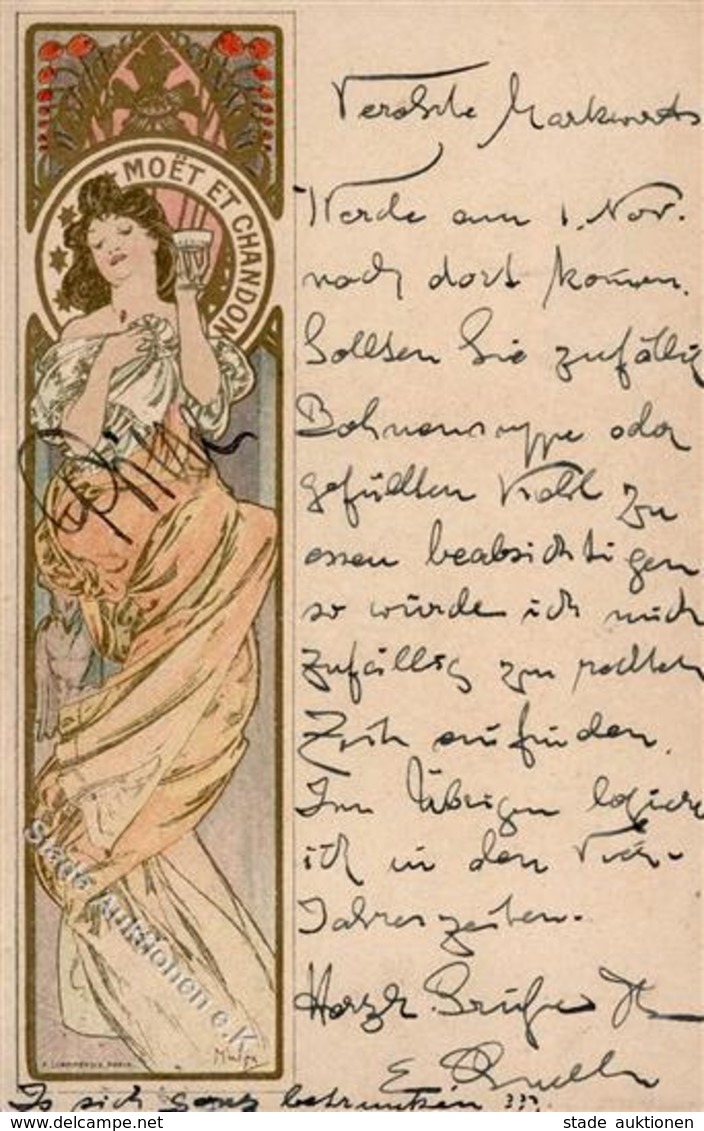 MOËT ET CHANDON
Verehrte Markwarts
Werde am 1. Nov.
nach dort kommen.
Sollten Sie zufällig
Bohnensuppe oder
gefüllten Kohl zu
essen beabsichtigen
so würde ich mich
zufällig zu rechter
Zeit einfinden.
Im Übrigen logiere
ich in den Vier-
Jahreszeiten.
Herzl. Grüße Ih
E.
Is sich ganz betrunken ???
Mucha
F. CHAMPENOIS, PARIS.
Stade Auktionen e.K.
stade auktionen